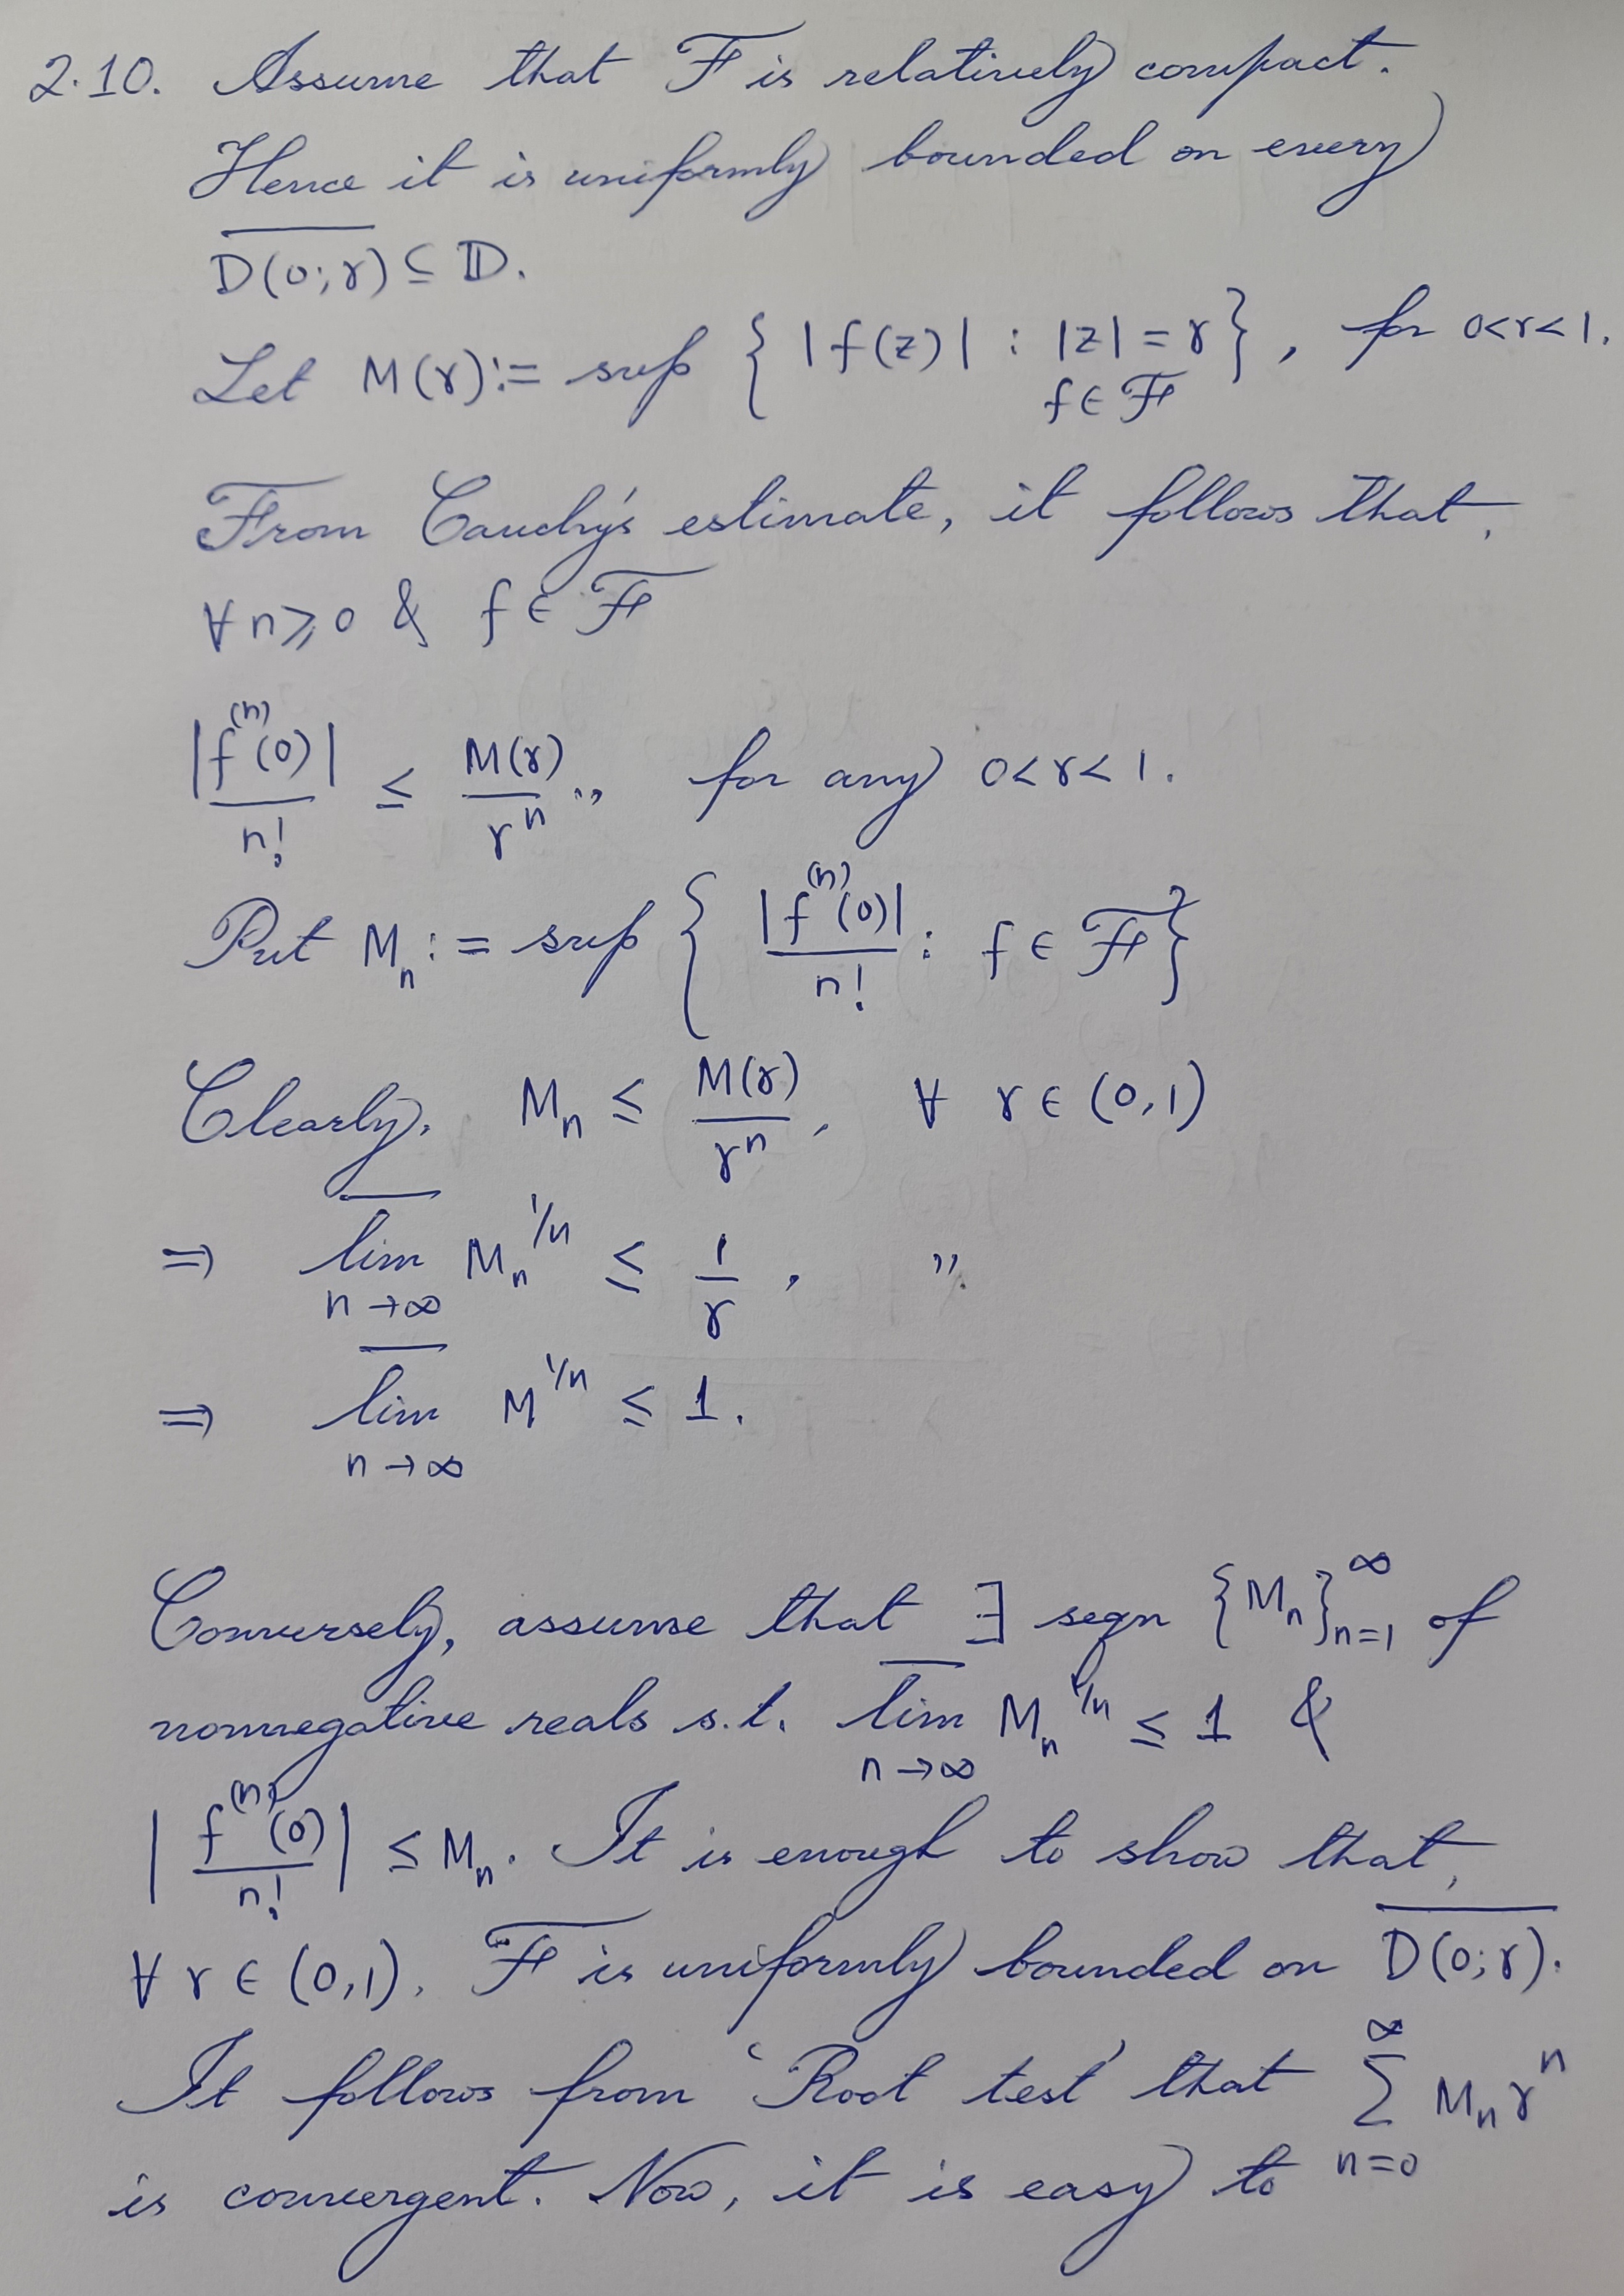 2.10. Assume that ℱ is relatively compact.
Hence it is uniformly bounded on every
$\overline{D(0;r)} \subseteq \mathbb{D}$.
Let $M(r) := \sup \left\{ |f(z)| : \substack{|z|=r \\ f \in ℱ} \right\}$, for $0<r<1$.
From Cauchy's estimate, it follows that,
∀ n ⩾ 0 & f ∈ ℱ
$\frac{|f^{(n)}(0)|}{n!} \leq \frac{M(r)}{r^n}$, for any $0<r<1$.
Put $M_n := \sup \left\{ \frac{|f^{(n)}(0)|}{n!} : f \in ℱ \right\}$
Clearly, $M_n \leq \frac{M(r)}{r^n}$, ∀ $r \in (0,1)$
⇒ $\overline{\lim}_{n \to \infty} M_n^{1/n} \leq \frac{1}{r}$, "
⇒ $\overline{\lim}_{n \to \infty} M^{1/n} \leq 1$.
Conversely, assume that ∃ seqn $\{M_n\}_{n=1}^{\infty}$ of
nonnegative reals s.t. $\overline{\lim}_{n \to \infty} M_n^{1/n} \leq 1$ &
$\left| \frac{f^{(n)}(0)}{n!} \right| \leq M_n$. It is enough to show that,
∀ r ∈ (0,1), ℱ is uniformly bounded on $\overline{D(0;r)}$.
It follows from 'Root test' that $\sum_{n=0}^{\infty} M_n r^n$
is convergent. Now, it is easy to